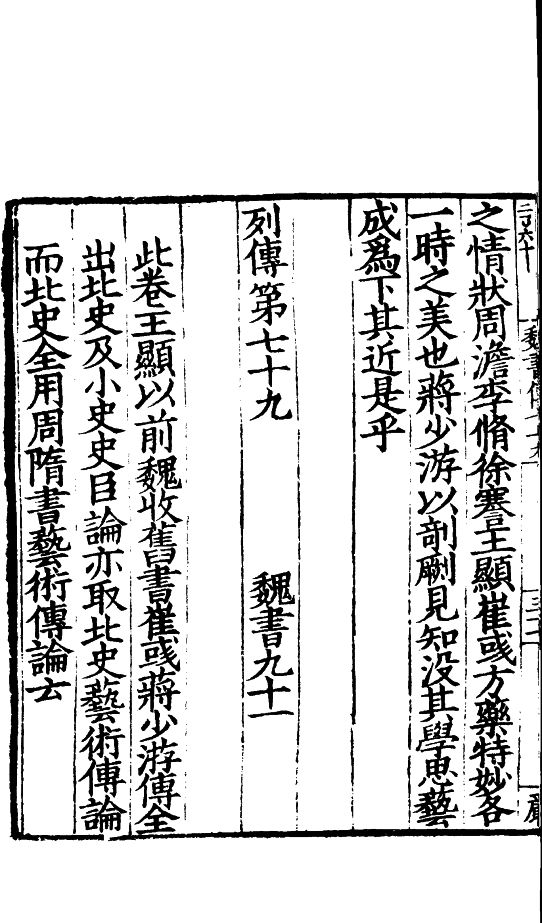 之情狀周澹李脩徐謇王顯崔彧方藥特妙各
一時之美也蔣少游以剞劂見知没其學思藝
成爲下其近是乎
列傳第七十九　魏書九十一
此卷王顯以前魏收舊書崔彧蔣少游傳全
出北史及小史史臣論亦取北史藝術傳論
而北史全用周隋書藝術傳論云